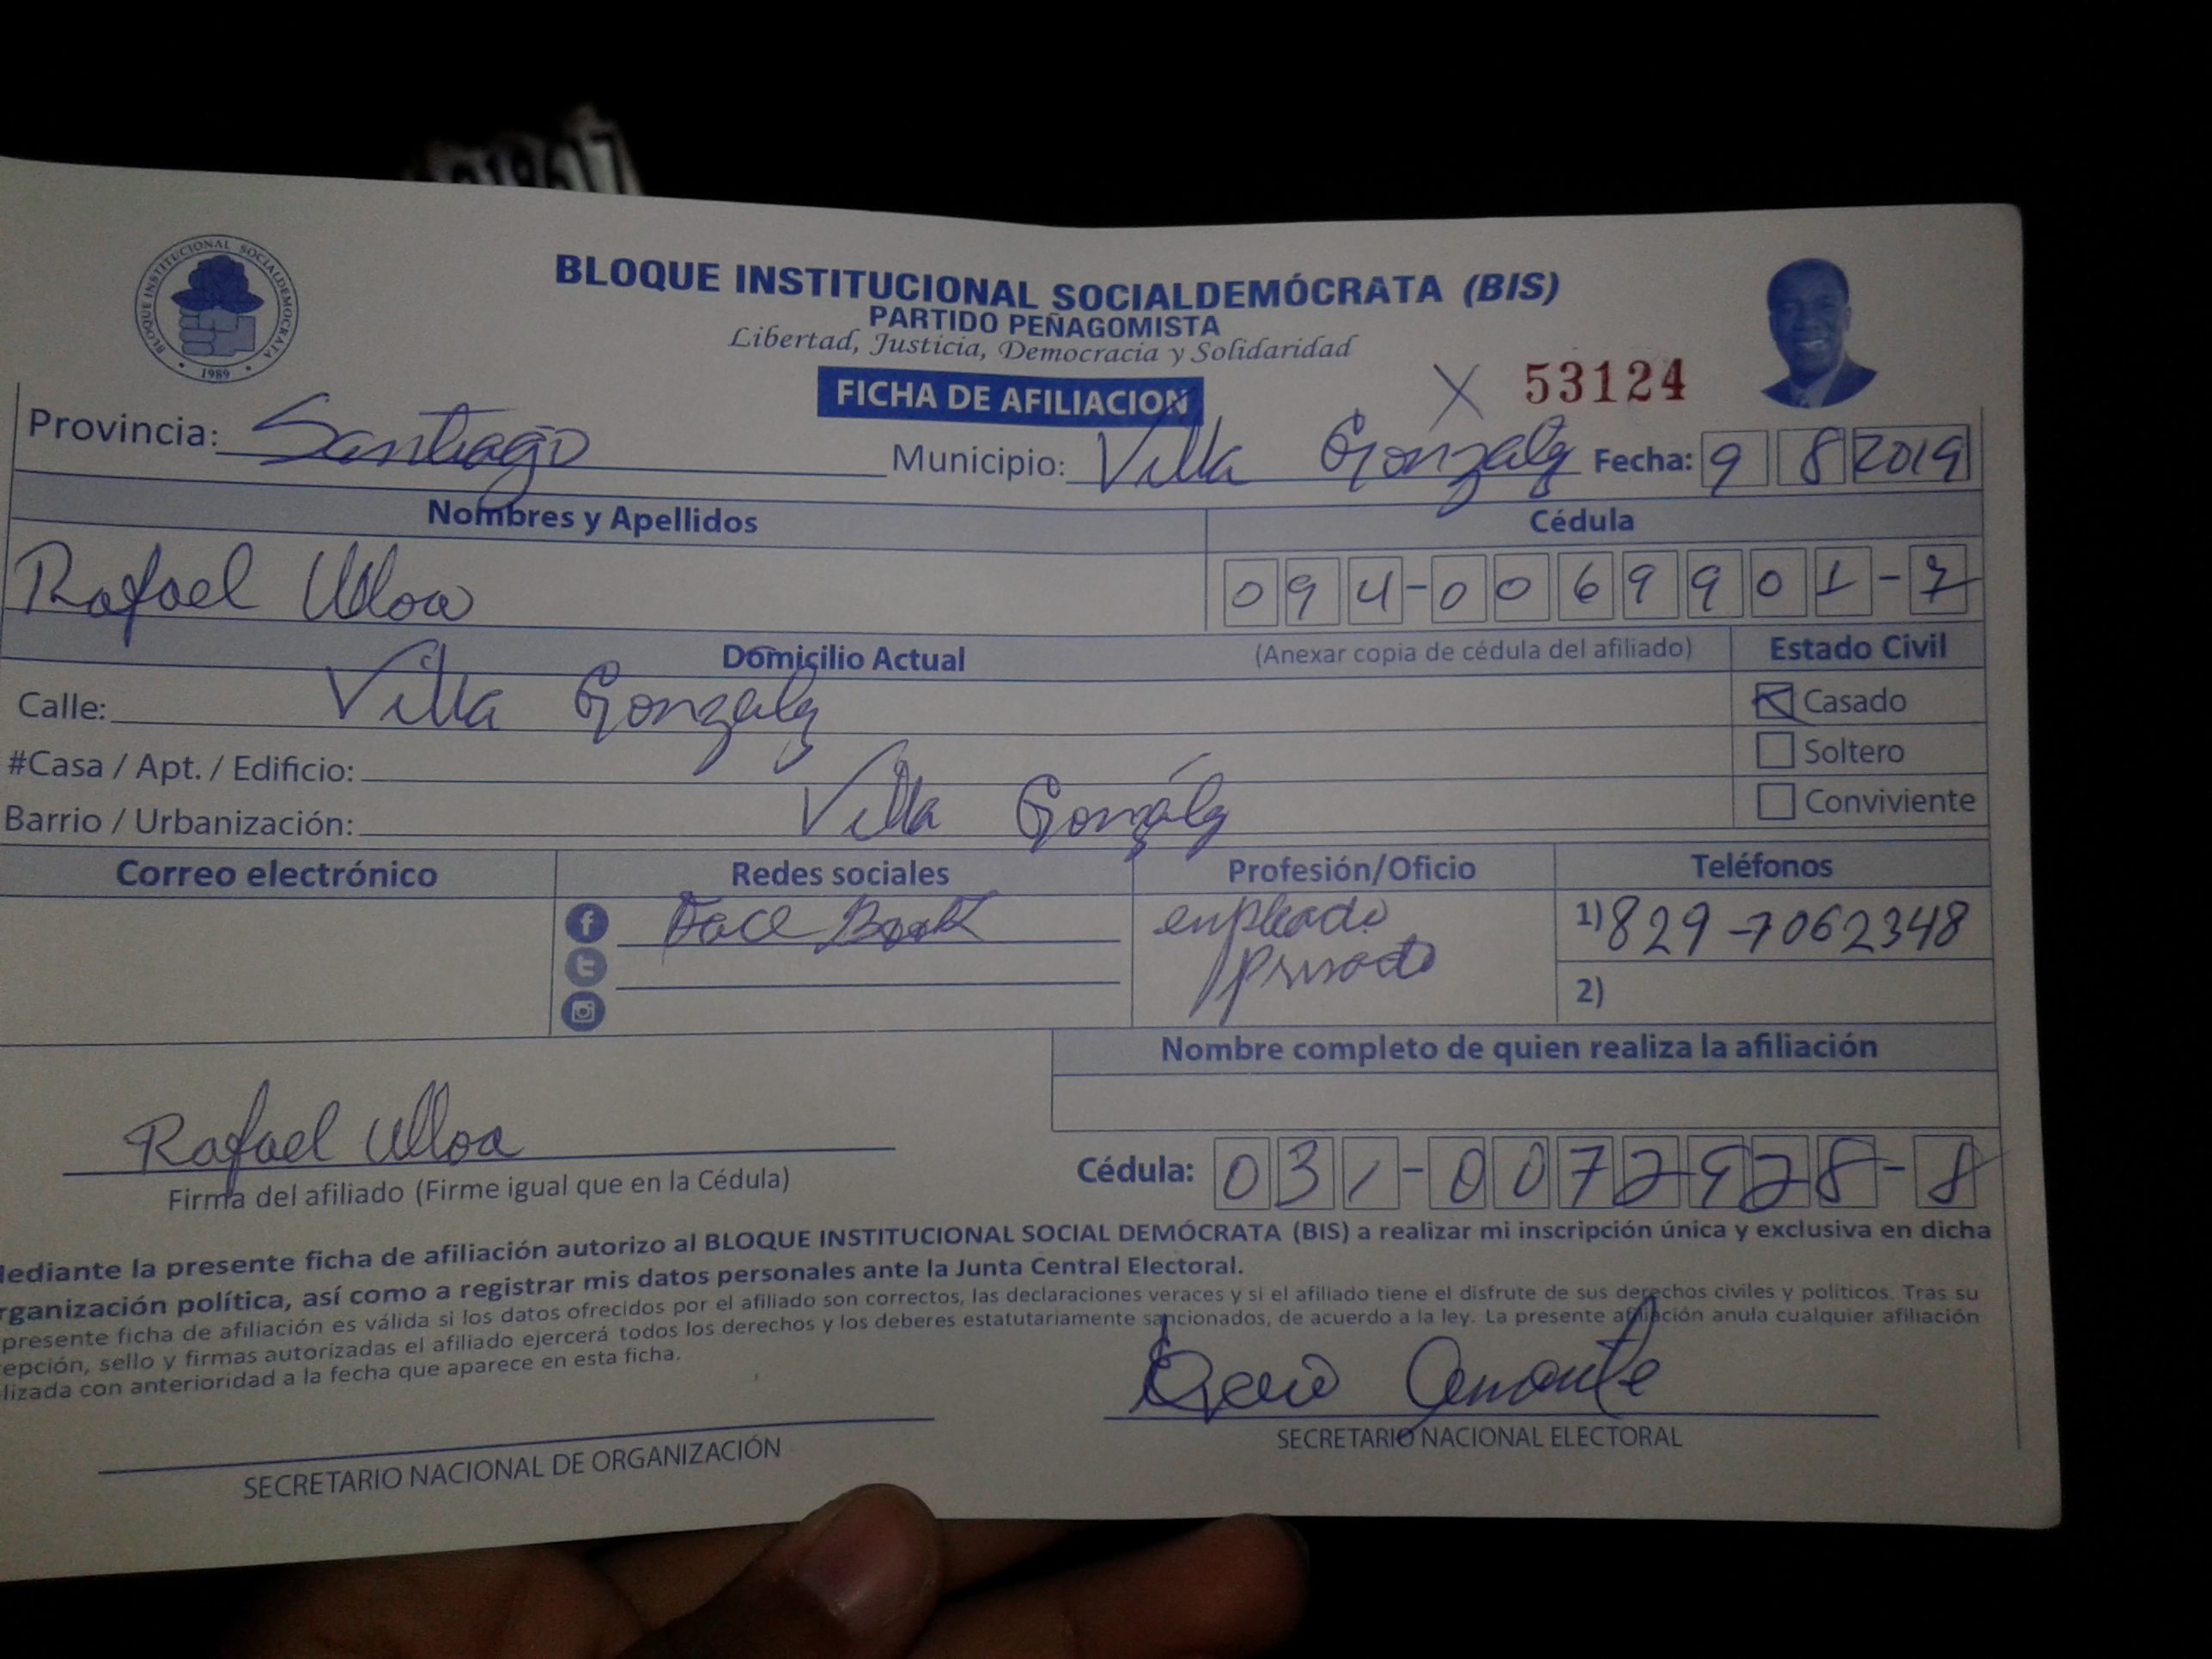 BLOQUE INSTITUCIONAL SOCIALDEMÓCRATA
1989
BLOQUE INSTITUCIONAL SOCIALDEMÓCRATA (BIS)
PARTIDO PEÑAGOMISTA
Libertad, Justicia, Democracia y Solidaridad
FICHA DE AFILIACION
X 53124
Provincia: Santiago Municipio: Villa Gonzalez Fecha: 9 8 2019
Nombres y Apellidos Cédula
Rafael Ulloa 094-0069901-7
Domicilio Actual (Anexar copia de cédula del afiliado) Estado Civil
Calle: Villa Gonzalez Casado
#Casa / Apt. / Edificio: Soltero
Barrio / Urbanización: Villa Gonzalez Conviviente
Correo electrónico Redes sociales Profesión/Oficio Teléfonos
Face Book enpleado privado 1) 829-7062348
2)
Nombre completo de quien realiza la afiliación
Rafael Ulloa
Firma del afiliado (Firme igual que en la Cédula)
Cédula: 031-0072928-8
Mediante la presente ficha de afiliación autorizo al BLOQUE INSTITUCIONAL SOCIAL DEMÓCRATA (BIS) a realizar mi inscripción única y exclusiva en dicha
rganización política, así como a registrar mis datos personales ante la Junta Central Electoral.
presente ficha de afiliación es válida si los datos ofrecidos por el afiliado son correctos, las declaraciones veraces y si el afiliado tiene el disfrute de sus derechos civiles y políticos. Tras su
epción, sello y firmas autorizadas el afiliado ejercerá todos los derechos y los deberes estatutariamente sancionados, de acuerdo a la ley. La presente afiliación anula cualquier afiliación
lizada con anterioridad a la fecha que aparece en esta ficha.
SECRETARIO NACIONAL DE ORGANIZACIÓN
SECRETARIO NACIONAL ELECTORAL